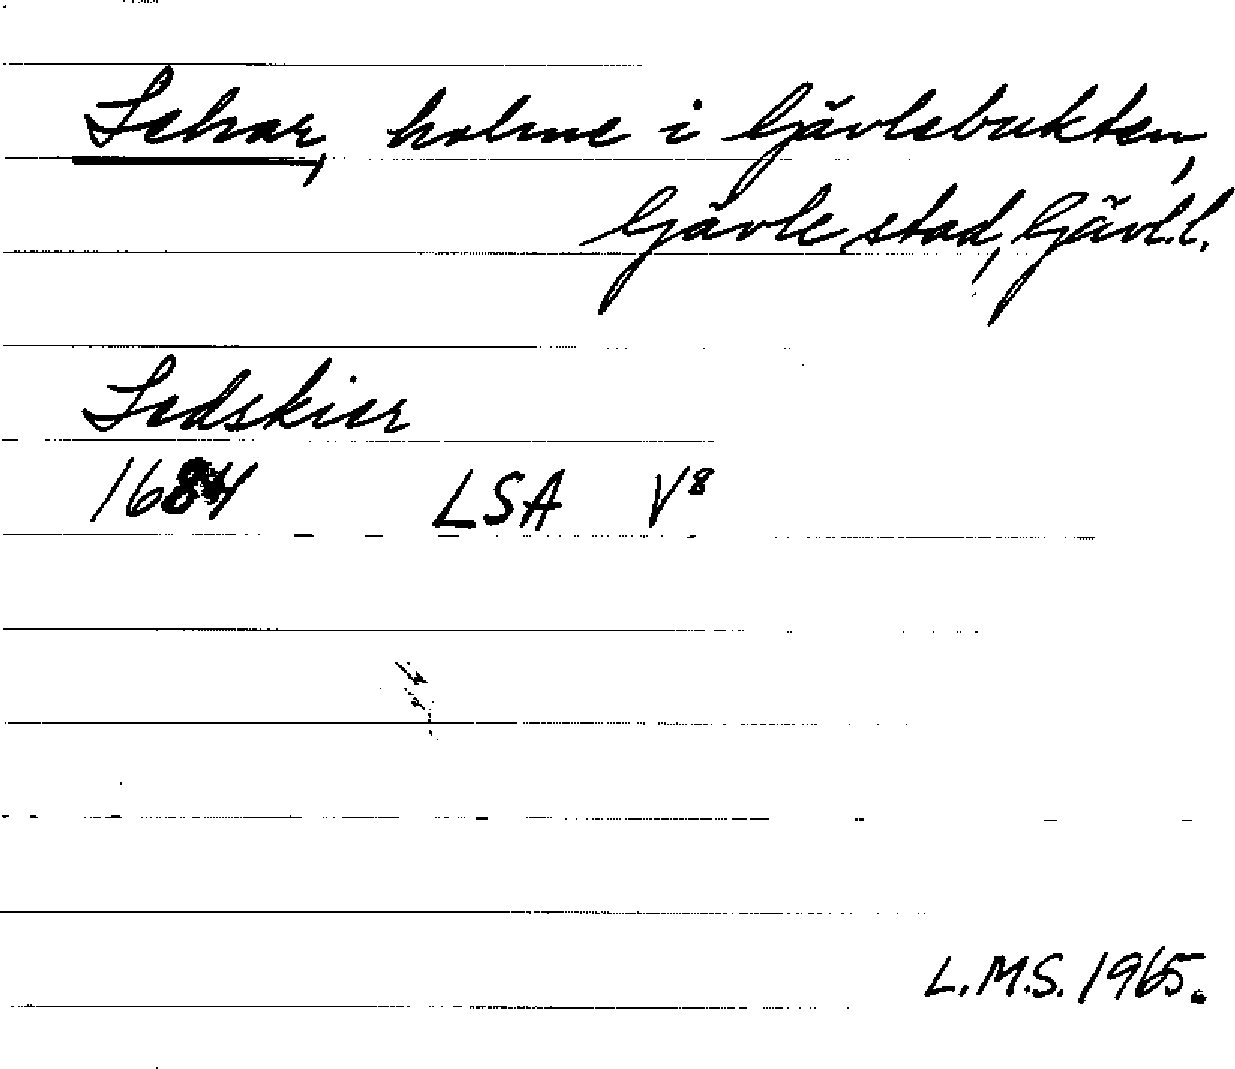 Lehar, holme i Gävlebukten,
Gävle stad, Gävl.l.
Ledskier
1684 LSA V8
L.M.S. 1965.